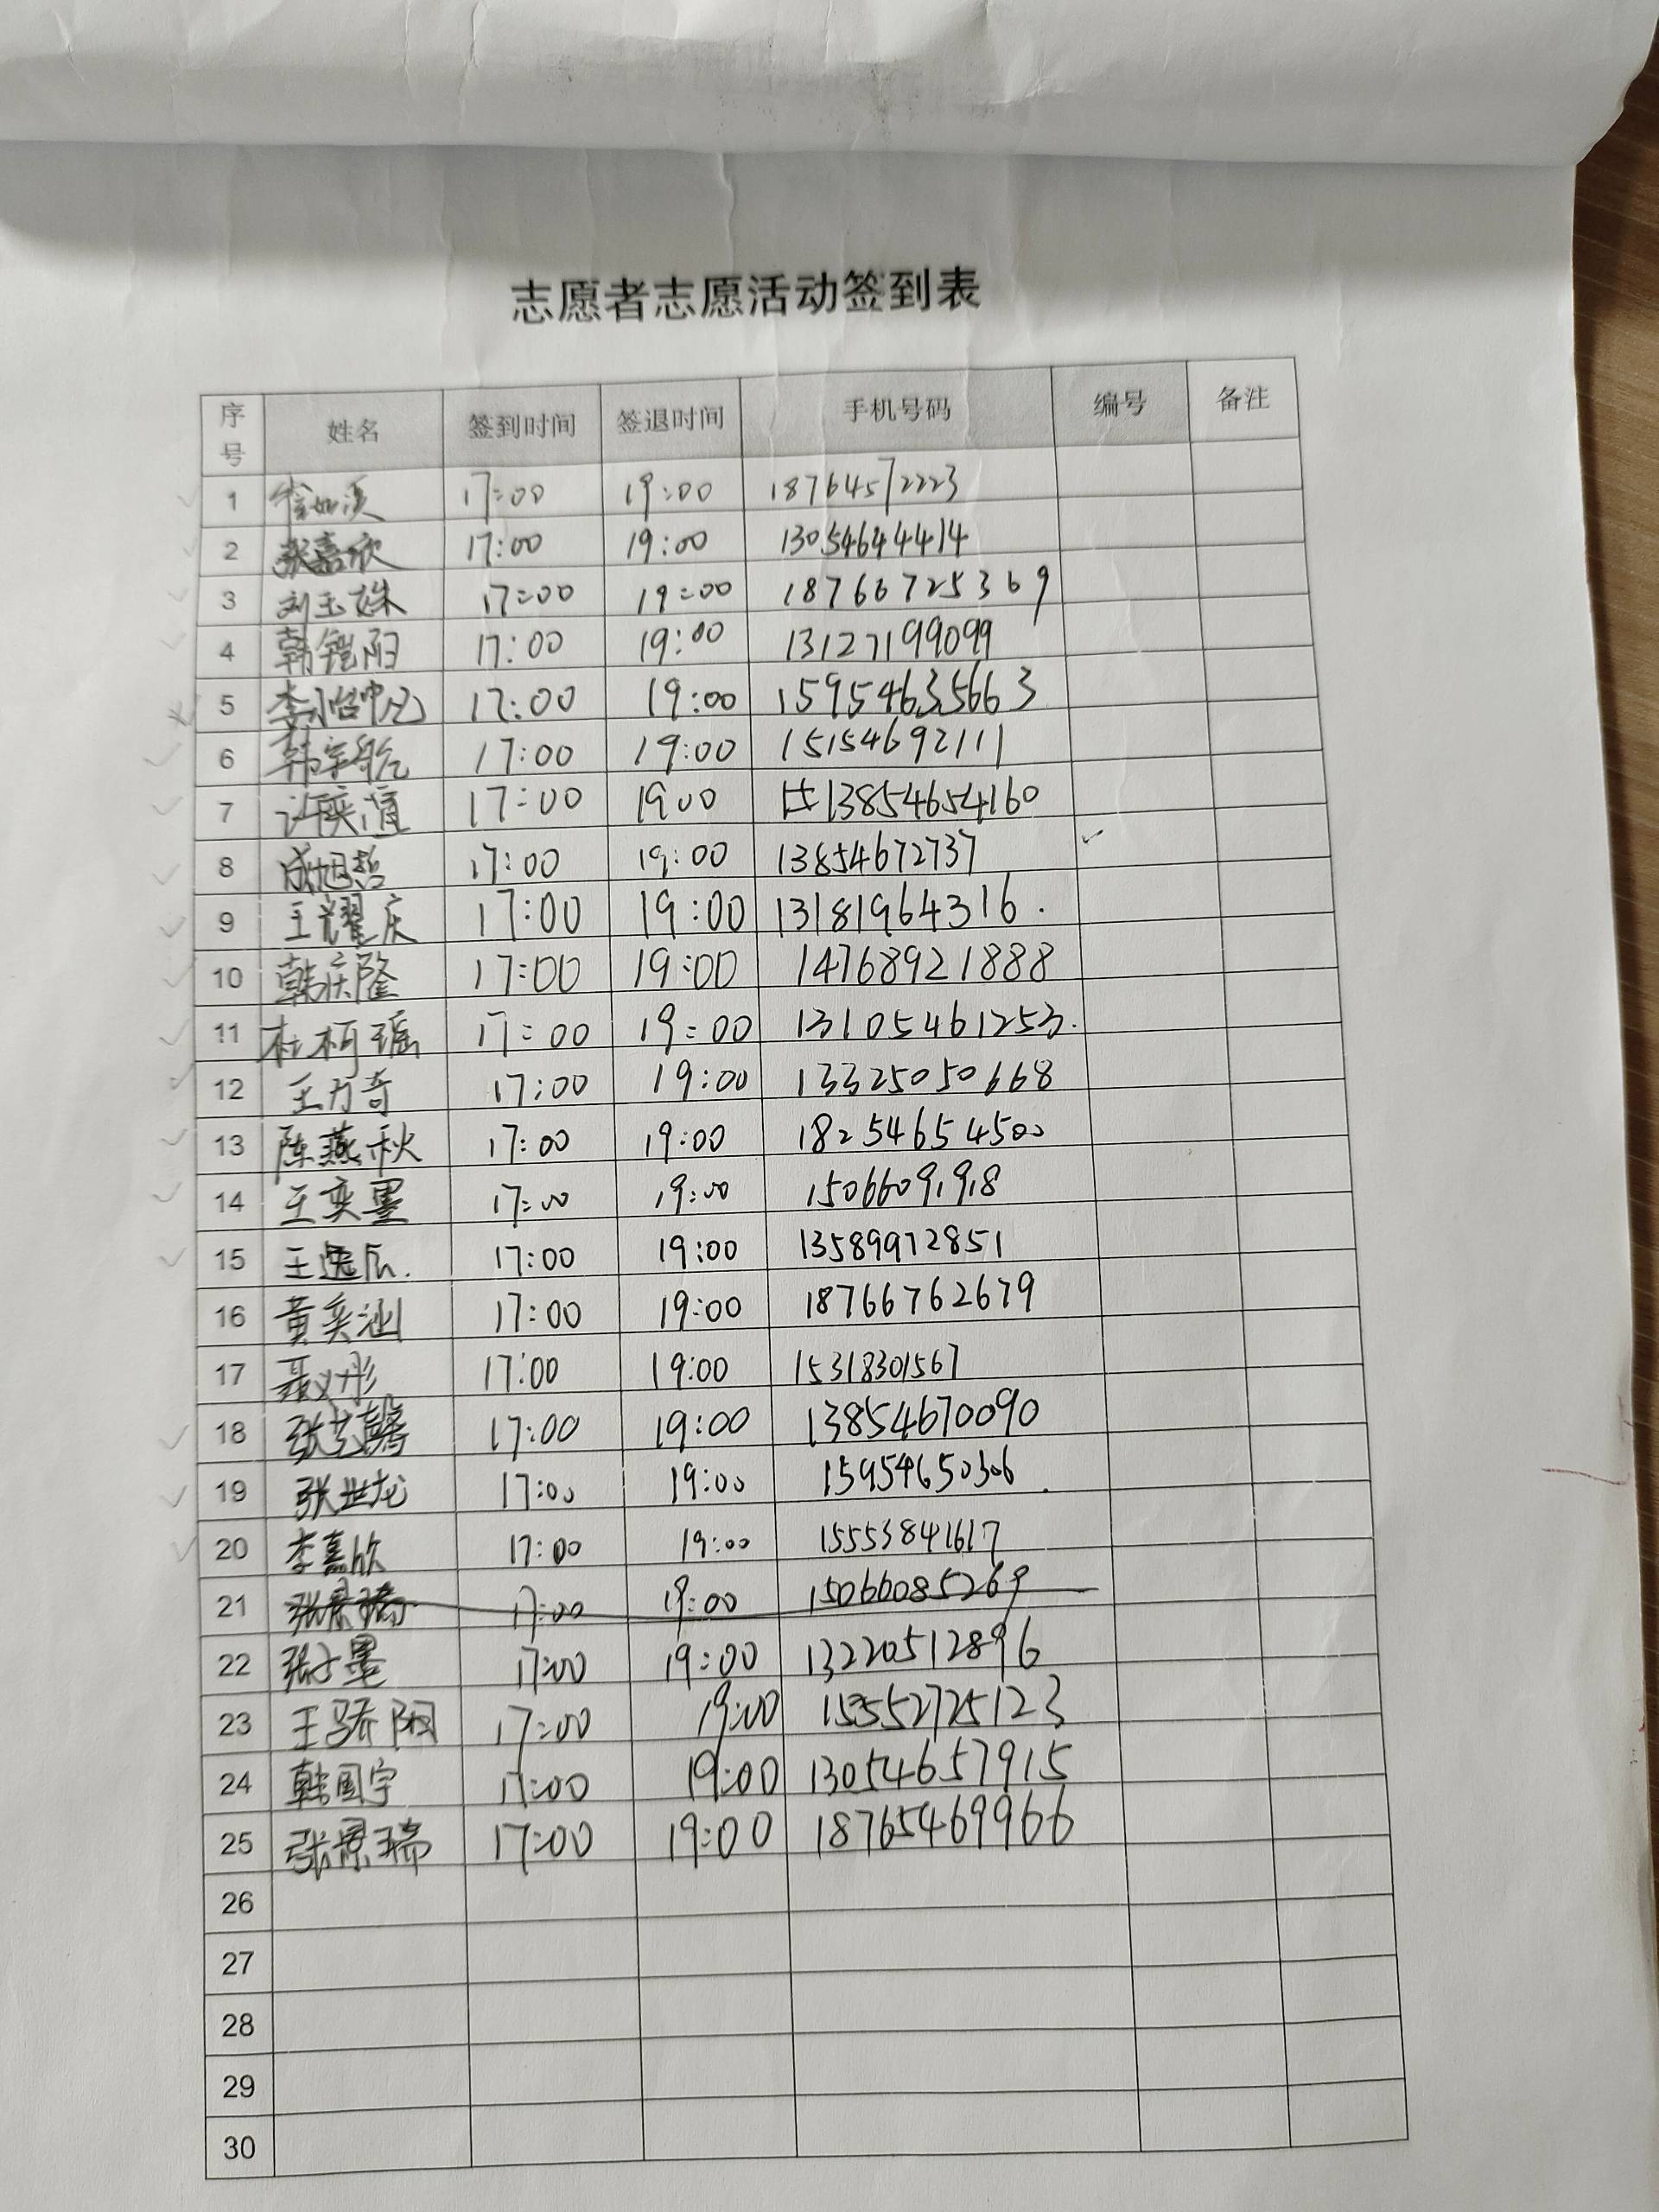 志愿者志愿活动签到表
序号 姓名 签到时间 签退时间 手机号码 编号 备注
1 17:00 19:00 18764572223
2 张嘉欣 17:00 19:00 13054644414
3 刘玉姝 17:00 19:00 18766725369
4 韩铠阳 17:00 19:00 13127199099
5 17:00 19:00 15954635663
6 17:00 19:00 15154692111
7 17:00 19:00 13854654160
8 成旭哲 17:00 19:00 13854672737
9 王耀庆 17:00 19:00 13181964316.
10 韩庆隆 17:00 19:00 14768921888
11 杜柯瑶 17:00 19:00 13105461253.
12 王力奇 17:00 19:00 13325050668
13 陈燕秋 17:00 19:00 18254654500
14 王奕墨 17:00 19:00 15066091918
15 王逸辰. 17:00 19:00 13589972851
16 黄奕汕 17:00 19:00 18766762679
17 聂义彤 17:00 19:00 15318301567
18 张艺馨 17:00 19:00 13854670090
19 张世龙 17:00 19:00 15954650306
20 李嘉欣 17:00 19:00 15553841617
21 17:00 19:00 15066085269
22 张子墨 17:00 19:00 13220512896
23 王骄阳 17:00 19:00 15552725123
24 韩国宇 17:00 19:00 13054657915
25 张景瑞 17:00 19:00 18765469966
26
27
28
29
30